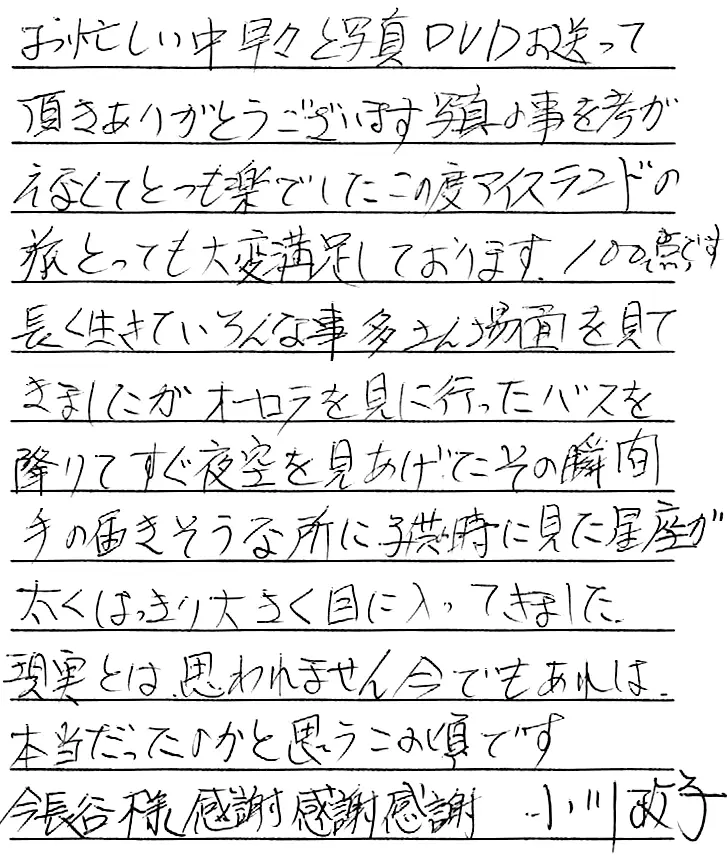 お忙しい中早々と写真DVDお送って
頂きありがとうございます写真の事を考が
えなくてとっても楽でしたこの度アイスランドの
旅とっても大変満足しております。100点です
長く生きていろんな事多さん場面を見て
きましたがオーロラを見に行ったバスを
降りてすぐ夜空を見あげたその瞬間
手の届きそうな所に子供時に見た星座が
太くはっきり大きく目に入ってきました。
現実とは思われません今でもあれは、
本当だったのかと思うこの頃です
今長谷様感謝感謝感謝 小川政子